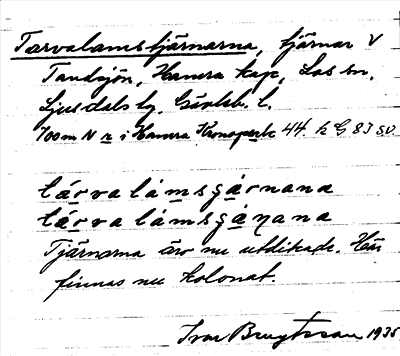 Tarvalamstjärnarna, tjärnar V
Tandsjön, Hamra kap, Los sn,
Ljusdals tg. Gävleb. l.
700 m N r i Hamra Kronopark 44. h G 83 SV.
tárvalámsgárnana
tárvalámsgáņana
Tjärnarna är nu utdikade. Här
finnas nu kolonat.
Ivar Bryntsson 1935